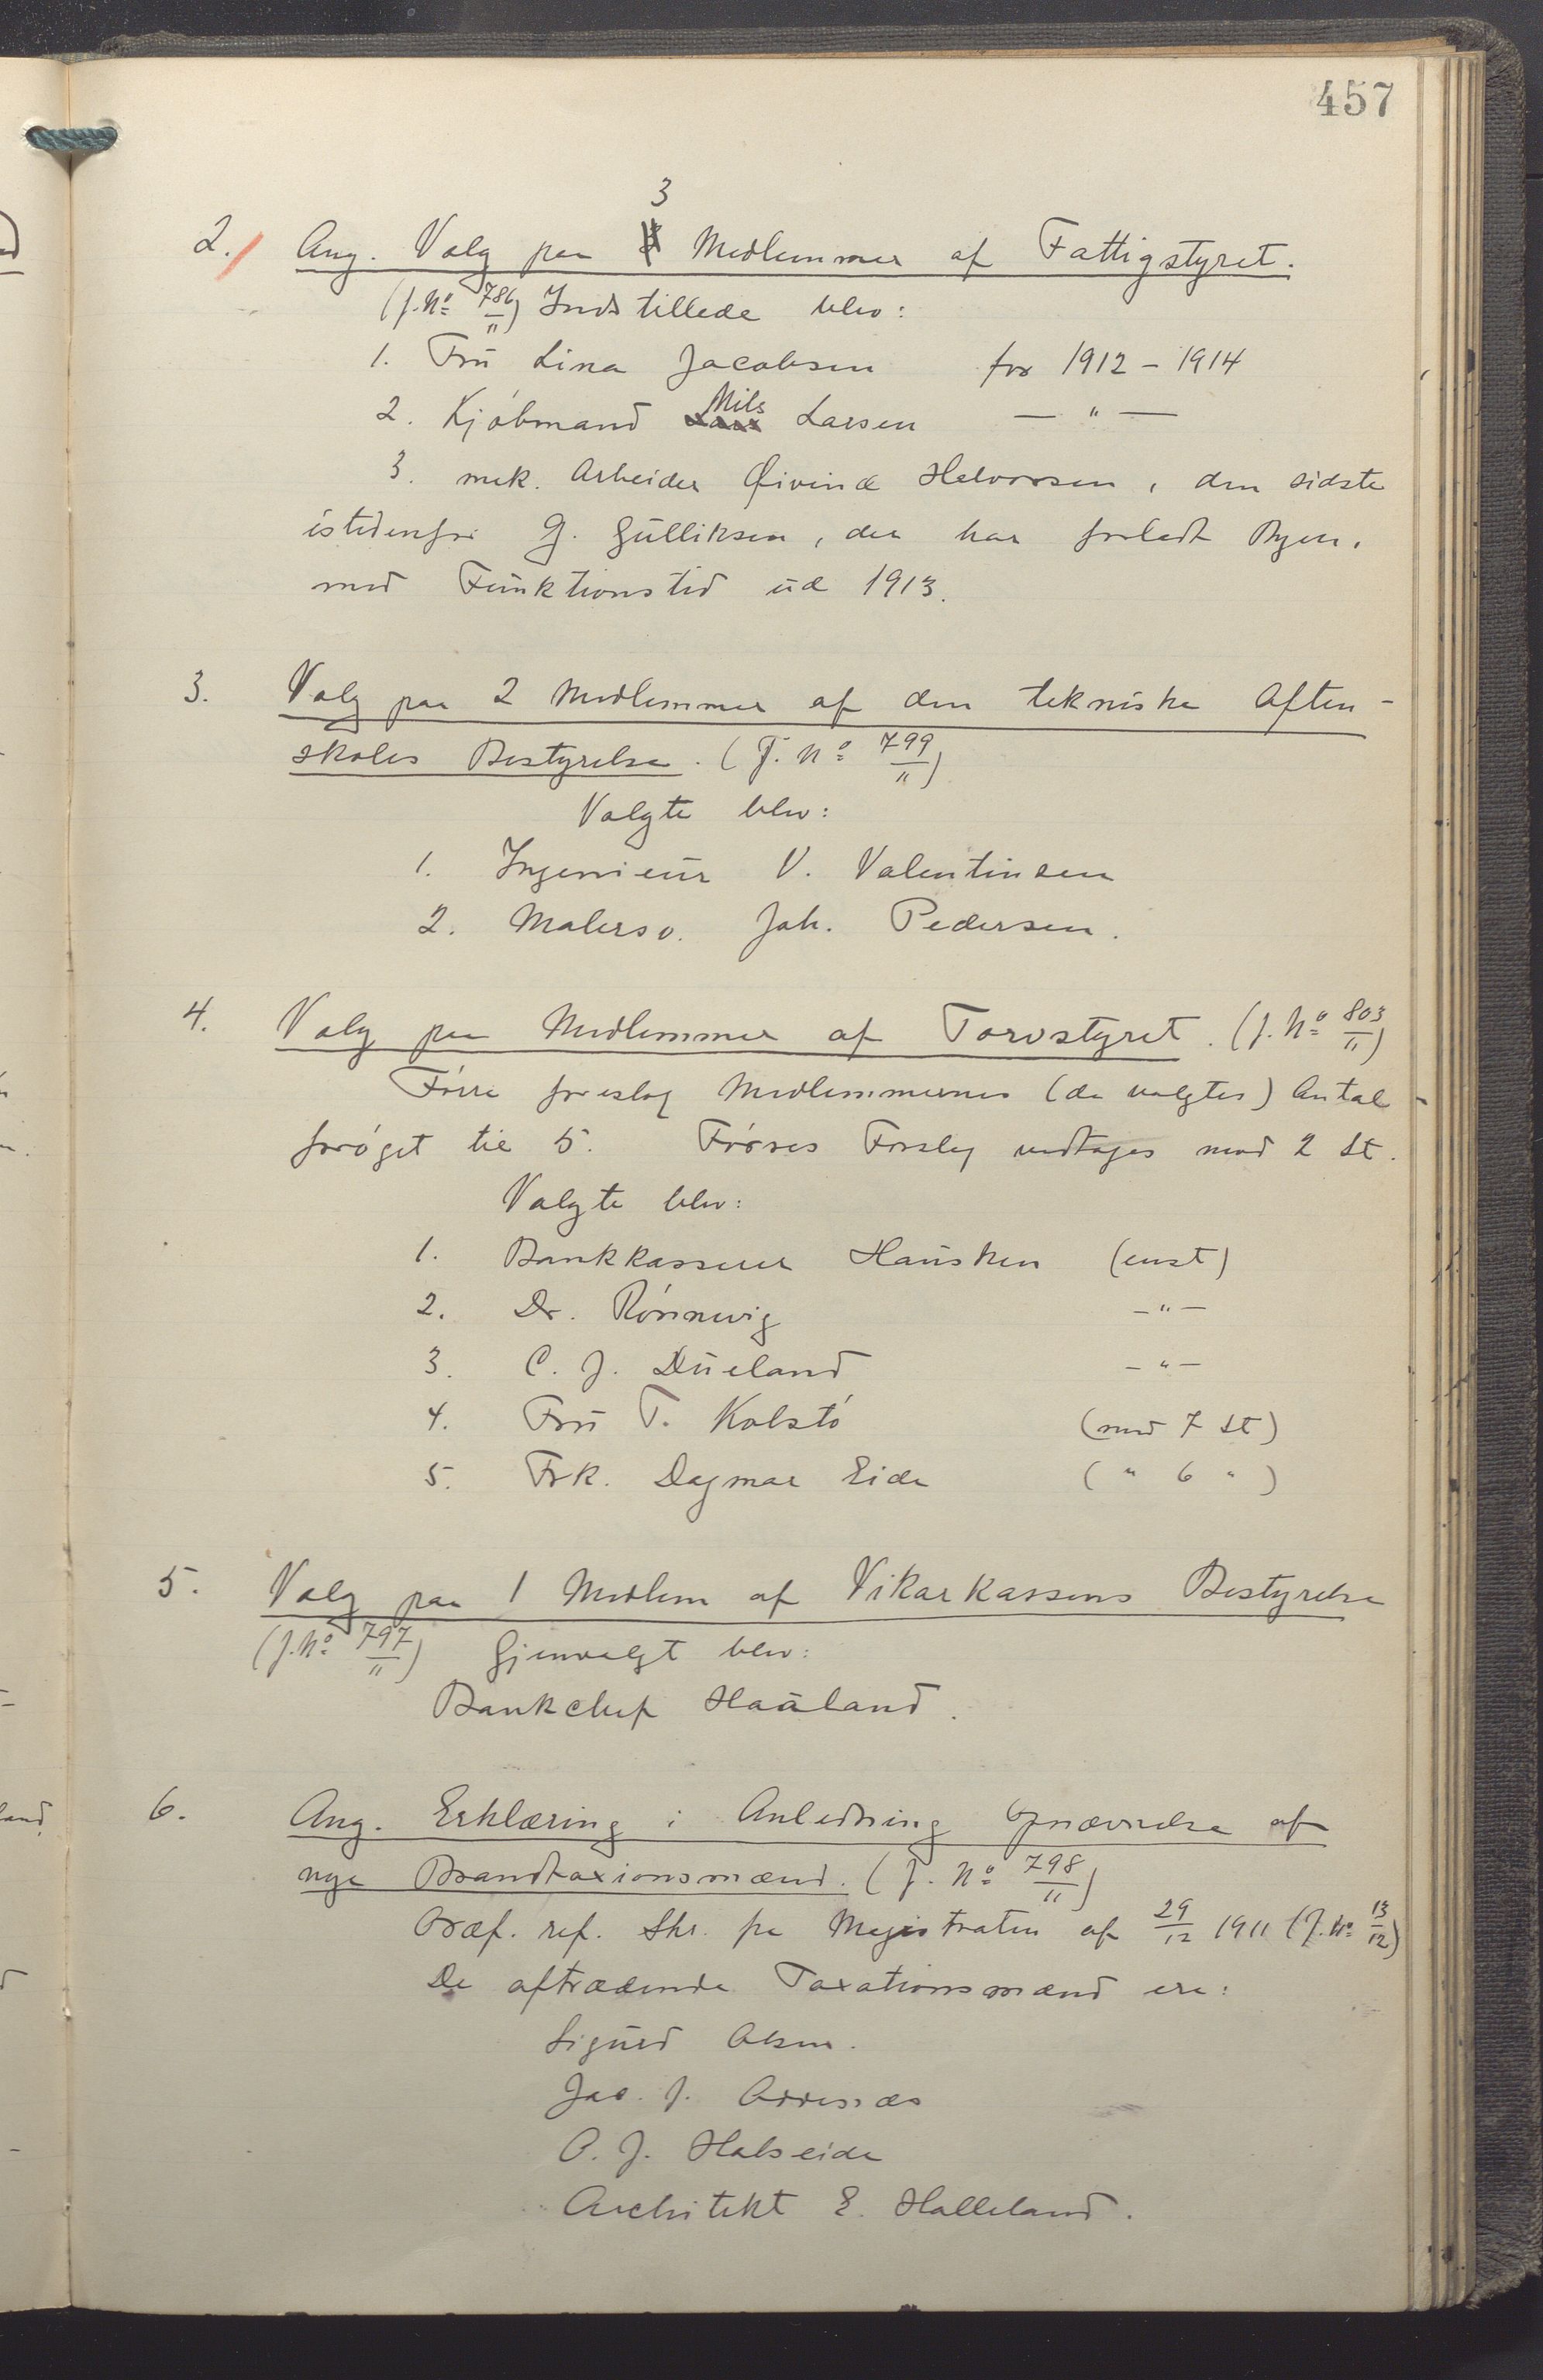 457
2. Ang. Valg paa 3 Medlemmer af Fattigstyret.
(J. No 786/11) Indstillede blev:
1. Fru Lina Jacobsen for 1912 - 1914
2. Kjøbmand Nils Larsen — " —
3. mek. Arbeider Øivind Halvorsen, den sidste
istedenfor G. Gulliksen, der har forladt Byen,
med Funktionstid ud 1913.
3. Valg paa 2 Medlemmer af den tekniske Aften-
skoles Bestyrelse. (J. No 799/11)
Valgte blev:
1. Ingeniør V. Valentinsen
2. Malersv. Joh. Pedersen.
4. Valg paa Medlemmer af Torvstyret. (J. No 803/11)
Førre foreslog Medlemmernes (de valgtes) Antal
forøget til 5. Førres Forslag vedtages mod 2 St.
Valgte blev:
1. Bankkasserer Hausken (enst)
2. Dr. Rønnevig - " -
3. C. J. Dueland - " -
4. Fru T. Kolstø (med 7 St)
5. Frk. Dagmar Eide ( " 6 " )
5. Valg paa 1 Medlem af Vikarkassens Bestyrelse
(J. No 797/11) Gjenvalgt blev:
Bankchef Haaland.
6. Ang. Erklæring i Anledning Opnævnelse af
nye Brandtaxionsmænd. (J. No 798/11)
Ordf. ref. Skr. fra Magistraten af 29/12 1911 (J. No 13/12)
De aftrædende Taxationsmænd ere:
Sigurd Olsen.
Jac. J. Arresnæs
O. J. Halseide
Architekt E. Halleland.